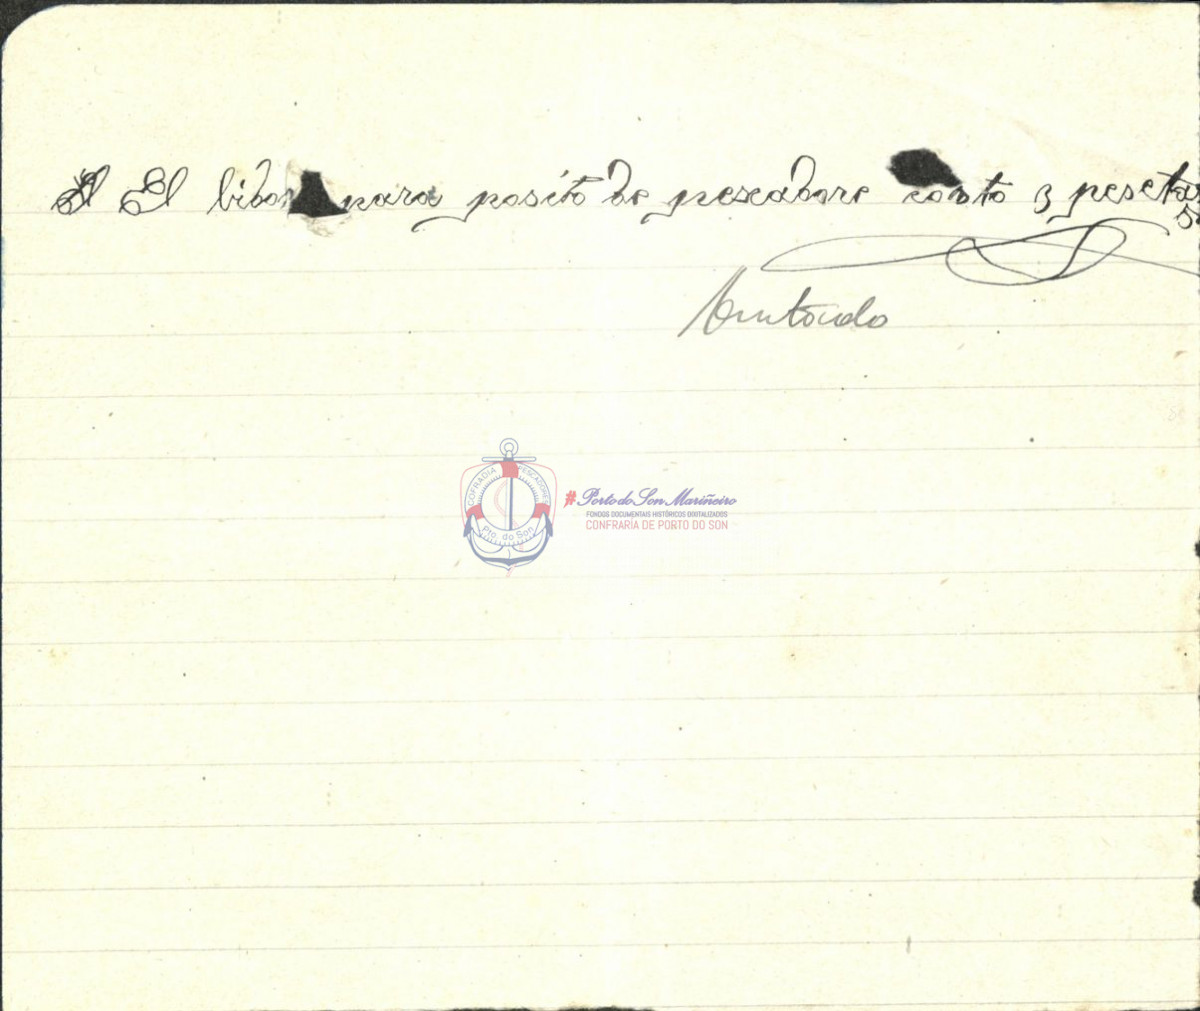 El bidon para posito de pescadore costo 3 pesetas
COFRADIA PESCADORES
Pto. do Son
#Porto do Son Mariñeiro
FONDOS DOCUMENTAIS HISTÓRICOS DIXITALIZADOS
CONFRARÍA DE PORTO DO SON